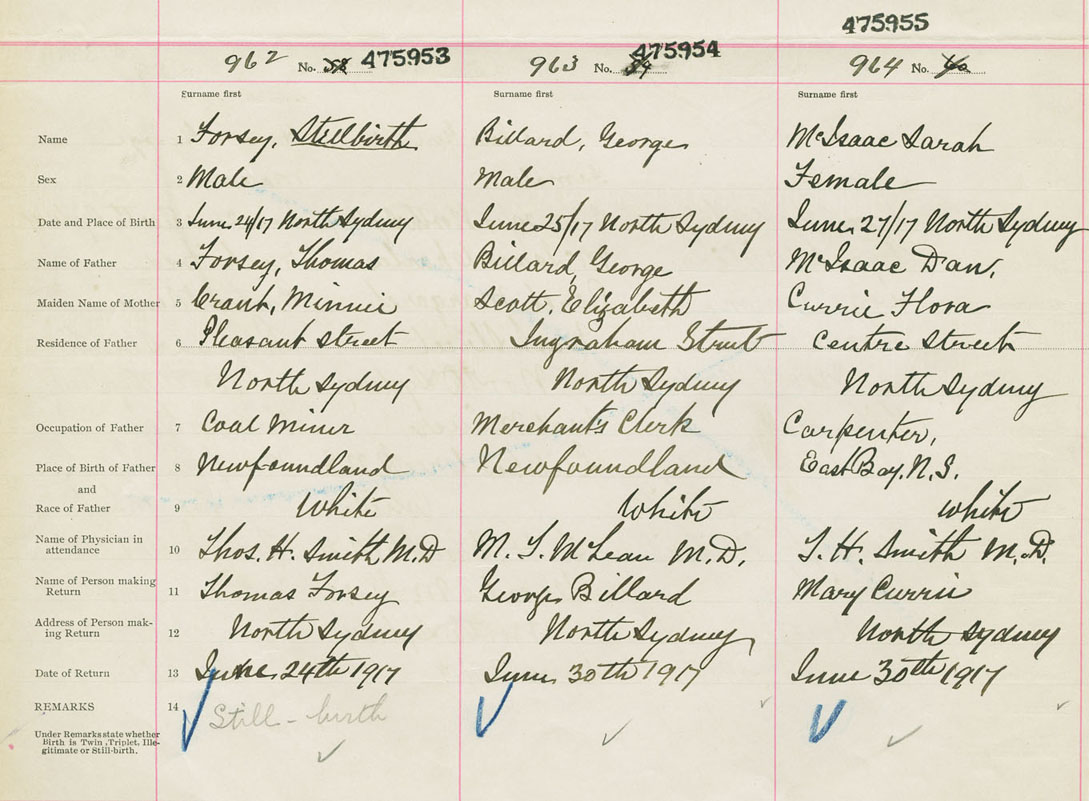 475955
962 No. 58 475953 963 No. 59 475954 964 No. 60
Surname first Surname first Surname first
Name 1 Forsey, Stillbirth Billard, George McIsaac Sarah
Sex 2 Male Male Female
Date and Place of Birth 3 June 24/17 North Sydney June 25/17 North Sydney June 27/17 North Sydney
Name of Father 4 Forsey, Thomas Billard, George McIsaac Dan.
Maiden Name of Mother 5 Grant, Minnie Scott, Elizabeth Currie Flora
Residence of Father 6 Pleasant street Ingraham Street Centre Street
North Sydney North Sydney North Sydney
Occupation of Father 7 Coal Miner Merchant's Clerk Carpenter,
Place of Birth of Father 8 Newfoundland Newfoundland East Bay, N.S.
and
Race of Father 9 White White White
Name of Physician in
attendance 10 Thos. H. Smith, M.D M. T. McLean M.D. T. H. Smith M.D.
Name of Person making
Return 11 Thomas Forsey George Billard Mary Currie
Address of Person mak-
ing Return 12 North Sydney North Sydney North Sydney
Date of Return 13 June 24th 1917 June 30th 1917 June 30th 1917
REMARKS 14 Still-birth
Under Remarks state whether
Birth is Twin, Triplet, Ille-
gitimate or Still-birth.